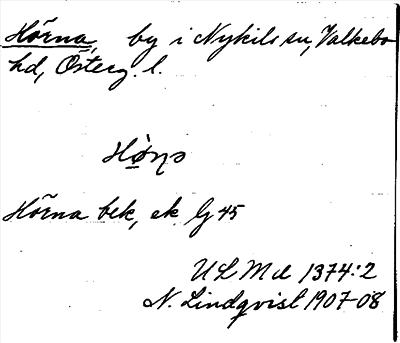 Hōrna, by i Nykils sn, Valkebo
hd, Österg. l.
Hōrna bek, ek G 45
ULMA 1374:2
N. Lindqvist 1907-08